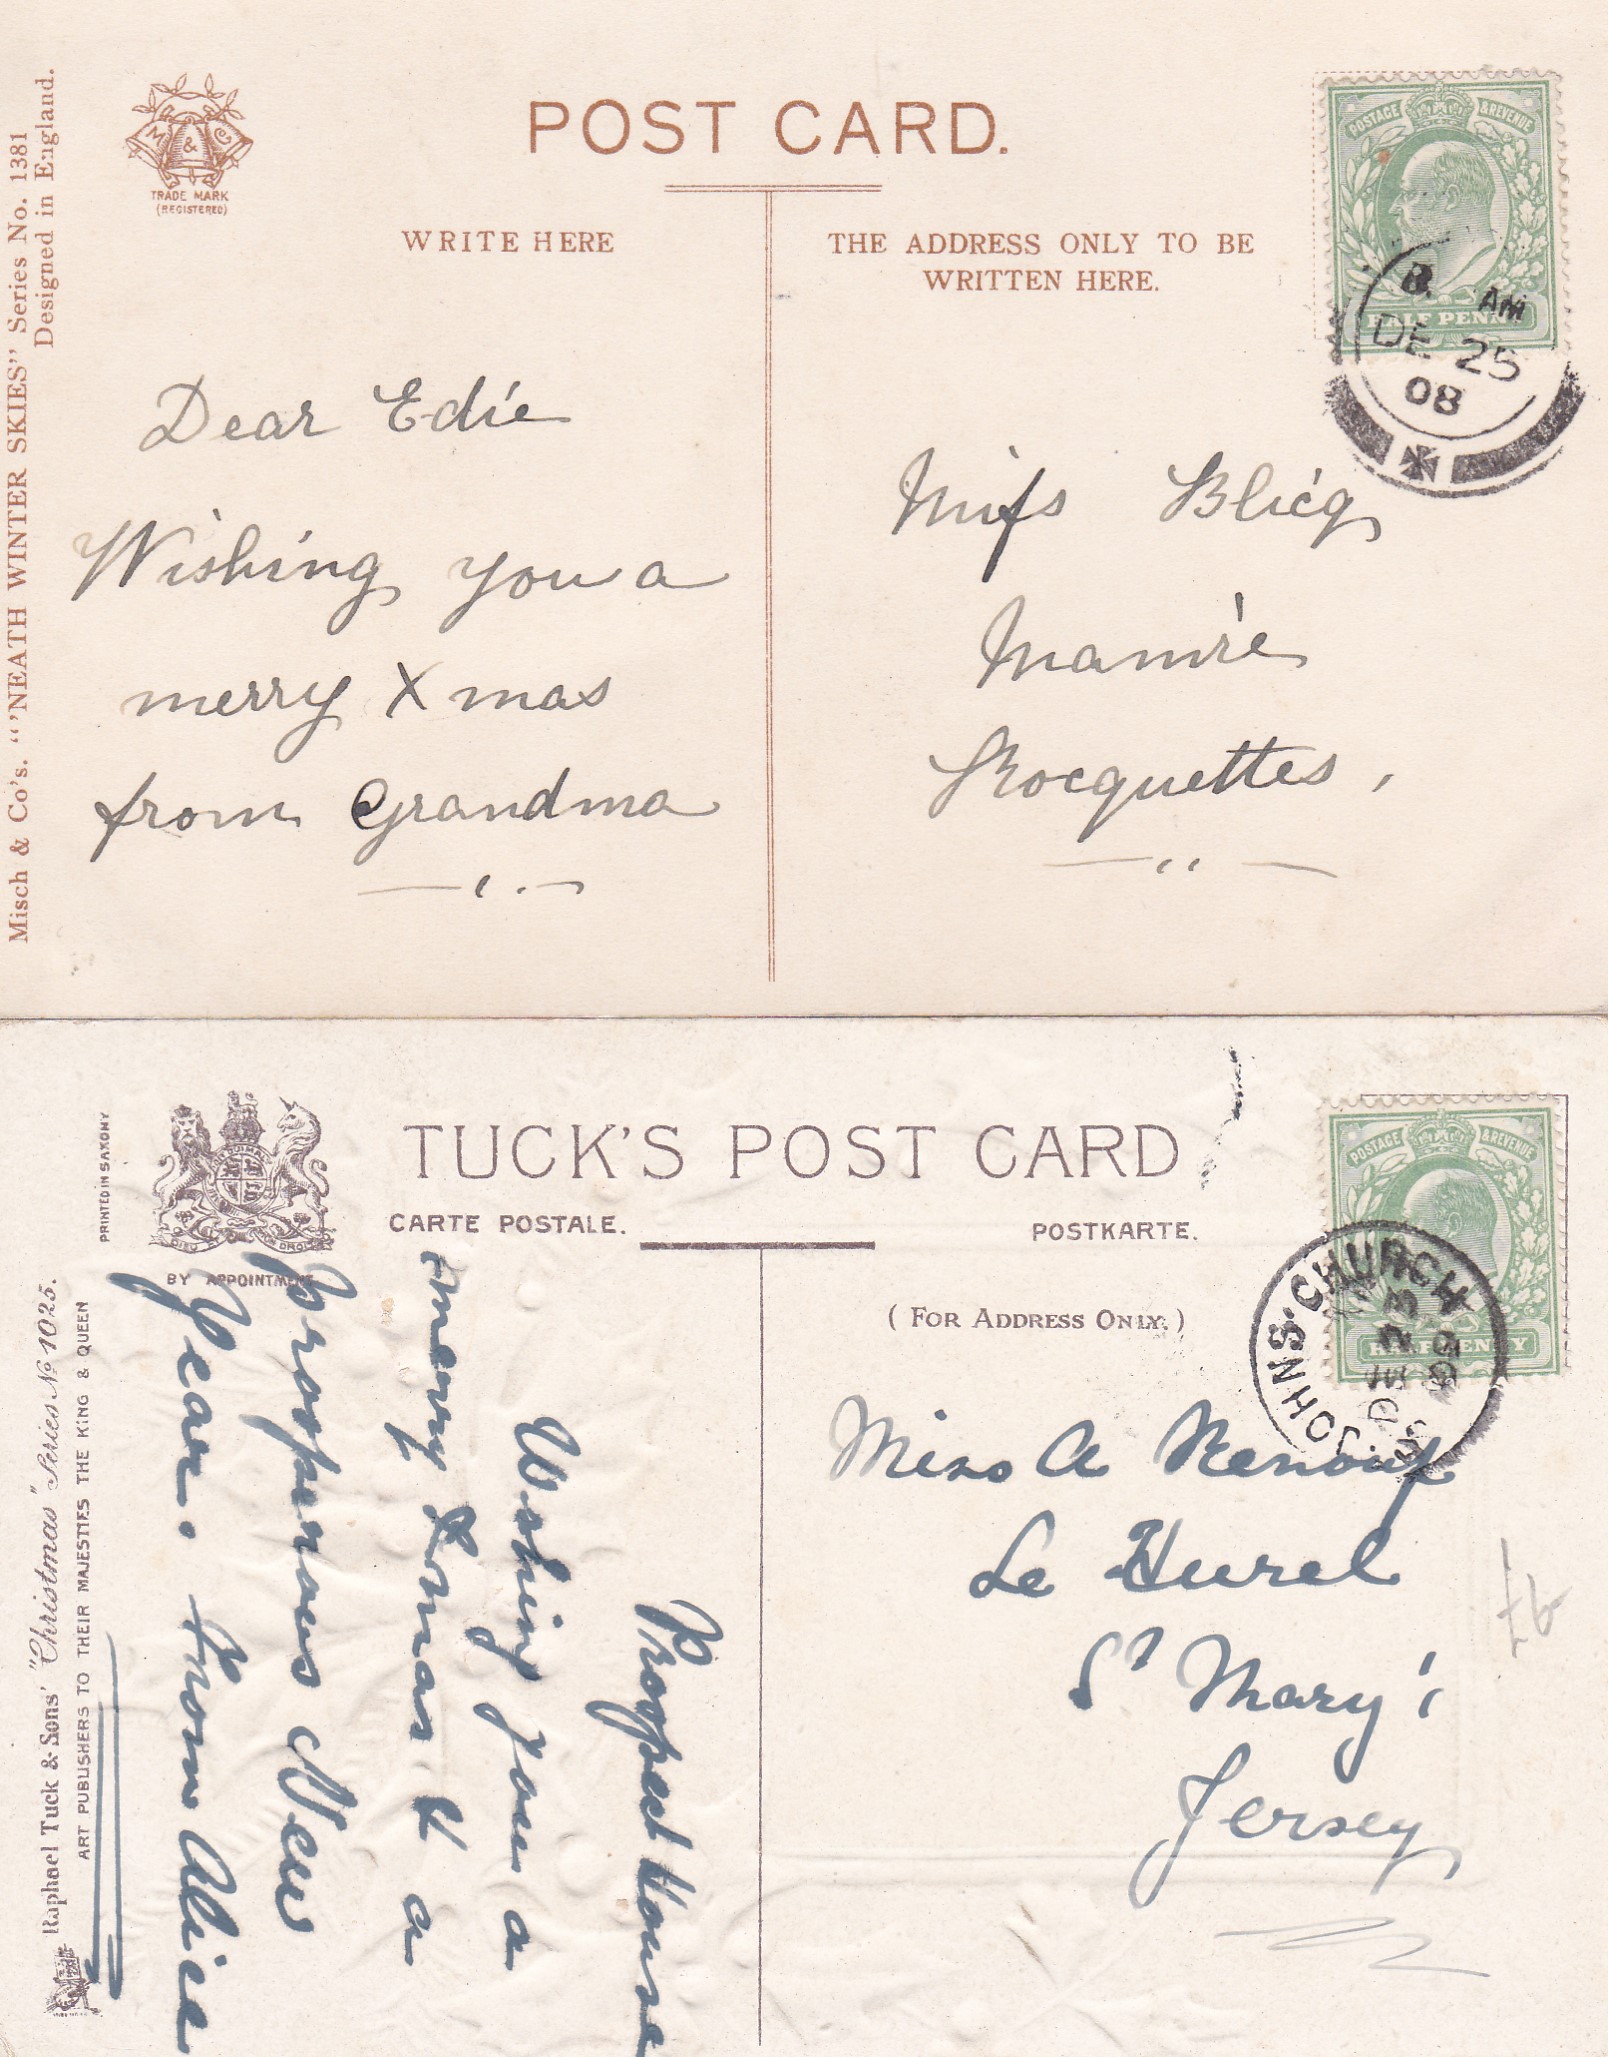 Misch & Co's. "'NEATH WINTER SKIES" Series No. 1381
Designed in England.
M & Co
TRADE MARK
(REGISTERED)
POST CARD.
WRITE HERE
THE ADDRESS ONLY TO BE
WRITTEN HERE.
POSTAGE & REVENUE
HALF PENNY
8. AM
DE 25
08
Dear Edie
Wishing you a
merry Xmas
from Grandma
Miss Blicq
Mamre
Rocquettes,
PRINTED IN SAXONY
DIEU ET MON DROIT
BY APPOINTMENT
TUCK'S POST CARD
CARTE POSTALE.
POSTKARTE.
(FOR ADDRESS ONLY.)
POSTAGE & REVENUE
HALFPENNY
ST JOHNS CHURCH
DE 23
09
Raphael Tuck & Sons' "Christmas" Series No 1025.
ART PUBLISHERS TO THEIR MAJESTIES THE KING & QUEEN
Prospect House
Wishing you a
merry Xmas & a
prosperous New
Year. from Alice
Miss A Renouf
Le Hurel
St Mary's
Jersey